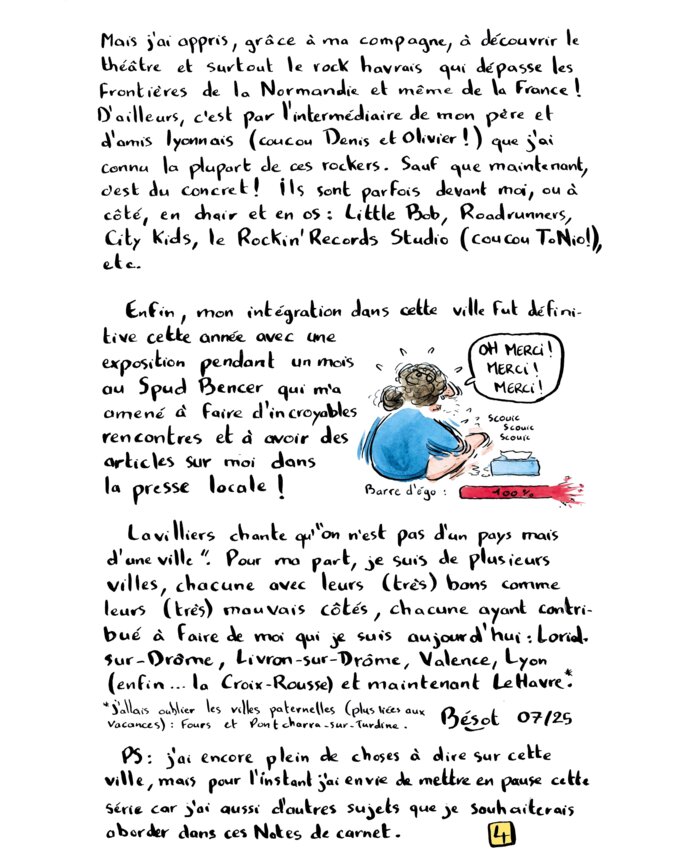 Mais j'ai appris, grâce à ma compagne, à découvrir le
théâtre et surtout le rock havrais qui dépasse les
frontières de la Normandie et même de la France !
D'ailleurs, c'est par l'intermédiaire de mon père et
d'amis lyonnais (coucou Denis et Olivier !) que j'ai
connu la plupart de ces rockers. Sauf que maintenant,
c'est du concret ! Ils sont parfois devant moi, ou à
côté, en chair et en os : Little Bob, Roadrunners,
City Kids, le Rockin' Records Studio (coucou ToNio!),
etc.
Enfin, mon intégration dans cette ville fut défini-
tive cette année avec une
exposition pendant un mois
au Spud Bencer qui m'a
amené à faire d'incroyables
rencontres et à avoir des
articles sur moi dans
la presse locale !
OH MERCI !
MERCI !
MERCI !
SCOUIC
SCOUIC
SCOUIC
Barre d'égo :
100%
Lavilliers chante qu'"on n'est pas d'un pays mais
d'une ville". Pour ma part, je suis de plusieurs
villes, chacune avec leurs (très) bons comme
leurs (très) mauvais côtés, chacune ayant contri-
bué à faire de moi qui je suis aujourd'hui : Loriol-
sur-Drôme, Livron-sur-Drôme, Valence, Lyon
(enfin... la Croix-Rousse) et maintenant Le Havre.*
*J'allais oublier les villes paternelles (plus liées aux
vacances) : Fours et Pontcharra-sur-Turdine.
Bésot 07/25
PS : j'ai encore plein de choses à dire sur cette
ville, mais pour l'instant j'ai envie de mettre en pause cette
série car j'ai aussi d'autres sujets que je souhaiterais
aborder dans ces Notes de carnet.
4